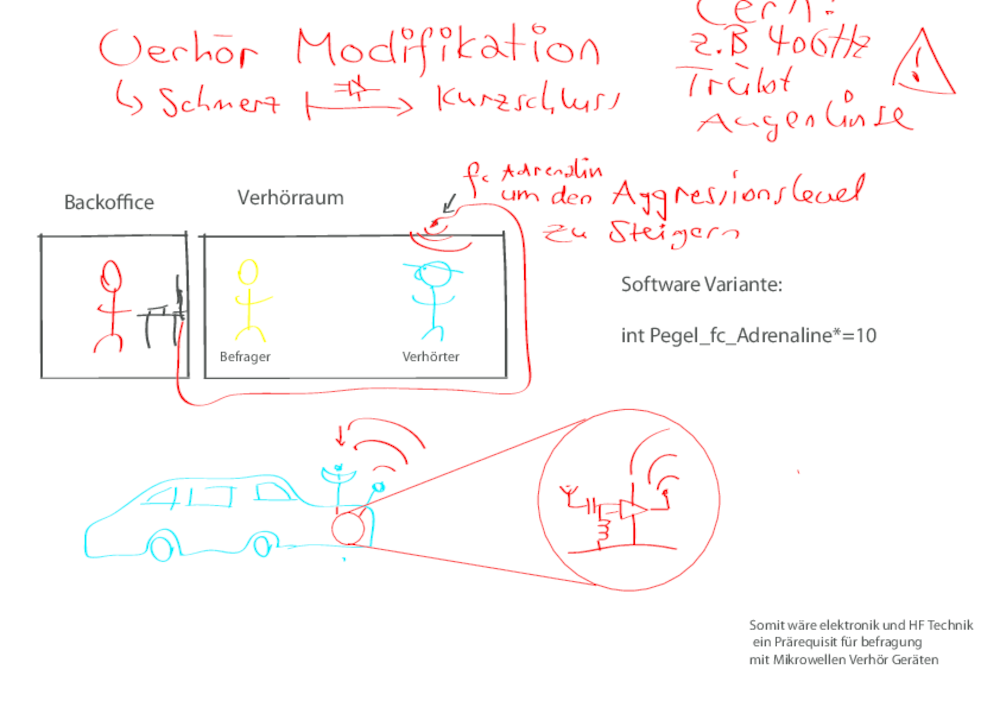 Verhör Modifikation
↳ Schmerz ↦ Kurzschluss
Cern:
z.B 40GHz
Trübt
Augenlinse
!
fc Adrenalin
um den Aggressionslevel
zu Steigern
Backoffice
Verhörraum
Befrager
Verhörter
Software Variante:
int Pegel_fc_Adrenaline*=10
Somit wäre elektronik und HF Technik
ein Prärequisit für befragung
mit Mikrowellen Verhör Geräten